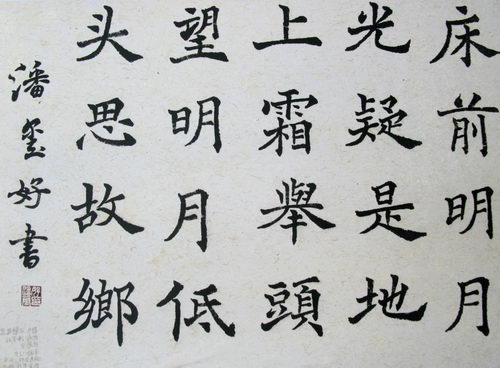 床前明月
光疑是地
上霜舉頭
望明月低
头思故鄉
潘玺好書